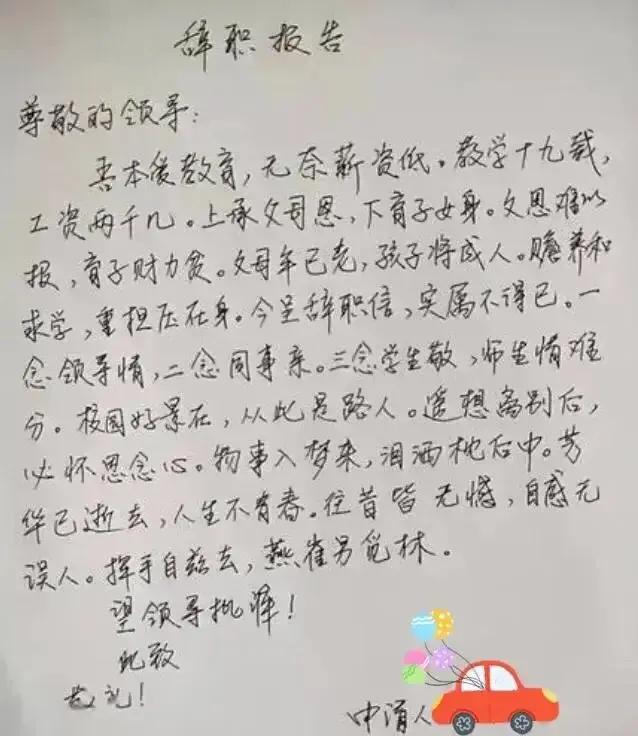 辞职报告
尊敬的领导：
吾本爱教育，无奈薪资低。教学十九载，
工资两千几。上承父母恩，下育子女身。父恩难以
报，育子财力贫。父母年已老，孩子将成人。赡养和
求学，重担压在身。今呈辞职信，实属不得已。一
念领导情，二念同事亲。三念学生敬，师生情难
分。校园好景在，从此是路人。遥想离别后，
必怀思念心。物事入梦来，泪洒枕后中。芳
华已逝去，人生不有春。往昔皆无憾，自感无
误人。挥手自兹去，燕雀另觅林。
望领导批准！
此致
敬礼！
申请人